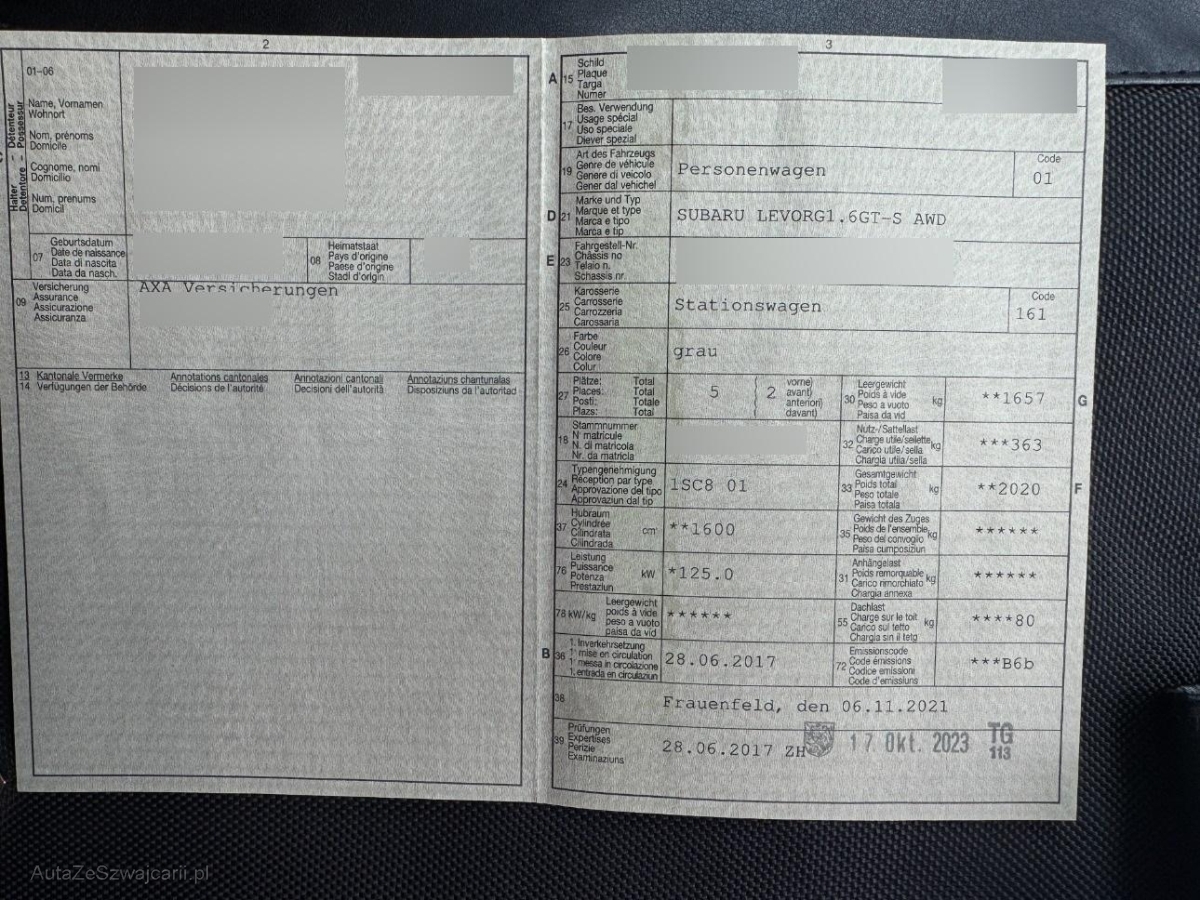 2
01-06
Halter - Détenteur
Detentore - Possessur
Name, Vornamen
Wohnort
Nom, prénoms
Domicile
Cognome, nomi
Domicilio
Num, prenums
Domicil
07
Geburtsdatum
Date de naissance
Data di nascita
Data da nasch.
08
Heimatstaat
Pays d'origine
Paese d'origine
Stadi d'origin
09
Versicherung
Assurance
Assicurazione
Assicuranza
AXA Versicherungen
13 Kantonale Vermerke Annotations cantonales Annotazioni cantonali Annotaziuns chantunalas
14 Verfügungen der Behörde Décisions de l'autorité Decisioni dell'autorità Disposiziuns da l'autoritad
3
A 15
Schild
Plaque
Targa
Numer
17
Bes. Verwendung
Usage spécial
Uso speciale
Diever spezial
19
Art des Fahrzeugs
Genre de véhicule
Genere di veicolo
Gener dal vehichel
Personenwagen
Code
01
D 21
Marke und Typ
Marque et type
Marca e tipo
Marca e tip
SUBARU LEVORG1.6GT-S AWD
E 23
Fahrgestell-Nr.
Châssis no
Telaio n.
Schassis nr.
25
Karosserie
Carrosserie
Carrozzeria
Carossaria
Stationswagen
Code
161
26
Farbe
Couleur
Colore
Colur
grau
27
Plätze: Total
Places: Total
Posti: Totale
Plazs: Total
5
2
vorne)
avant)
anteriori)
davant)
30
Leergewicht
Poids à vide
Peso a vuoto
Paisa da vid
kg
**1657
G
18
Stammnummer
N matricule
N. di matricola
Nr. da matricla
32
Nutz-/Sattellast
Charge utile/sellette
Carico utile/sella
Chargia utila/sella
kg
***363
24
Typengenehmigung
Réception par type
Approvazione del tipo
Approvaziun dal tip
1SC8 01
33
Gesamtgewicht
Poids total
Peso totale
Paisa totala
kg
**2020
F
37
Hubraum
Cylindrée
Cilindrata
Cilindrada
cm³
**1600
35
Gewicht des Zuges
Poids de l'ensemble
Peso del convoglio
Paisa cumposiziun
kg
******
76
Leistung
Puissance
Potenza
Prestaziun
kW
*125.0
31
Anhängelast
Poids remorquable
Carico rimorchiato
Chargia annexa
kg
******
78 kW/kg
Leergewicht
poids à vide
peso a vuoto
paisa da vid
******
55
Dachlast
Charge sur le toit
Carico sul tetto
Chargia sin il tetg
kg
****80
B 36
1. Inverkehrsetzung
1ʳᵉ mise en circulation
1ᵃ messa in circolazione
1. entrada en circulaziun
28.06.2017
72
Emissionscode
Code émissions
Codice emissioni
Code d'emissiuns
***B6b
38
Frauenfeld, den 06.11.2021
39
Prüfungen
Expertises
Perizie
Examinaziuns
28.06.2017 ZH
17. Okt. 2023
TG
113
AutaZeSzwajcarii.pl